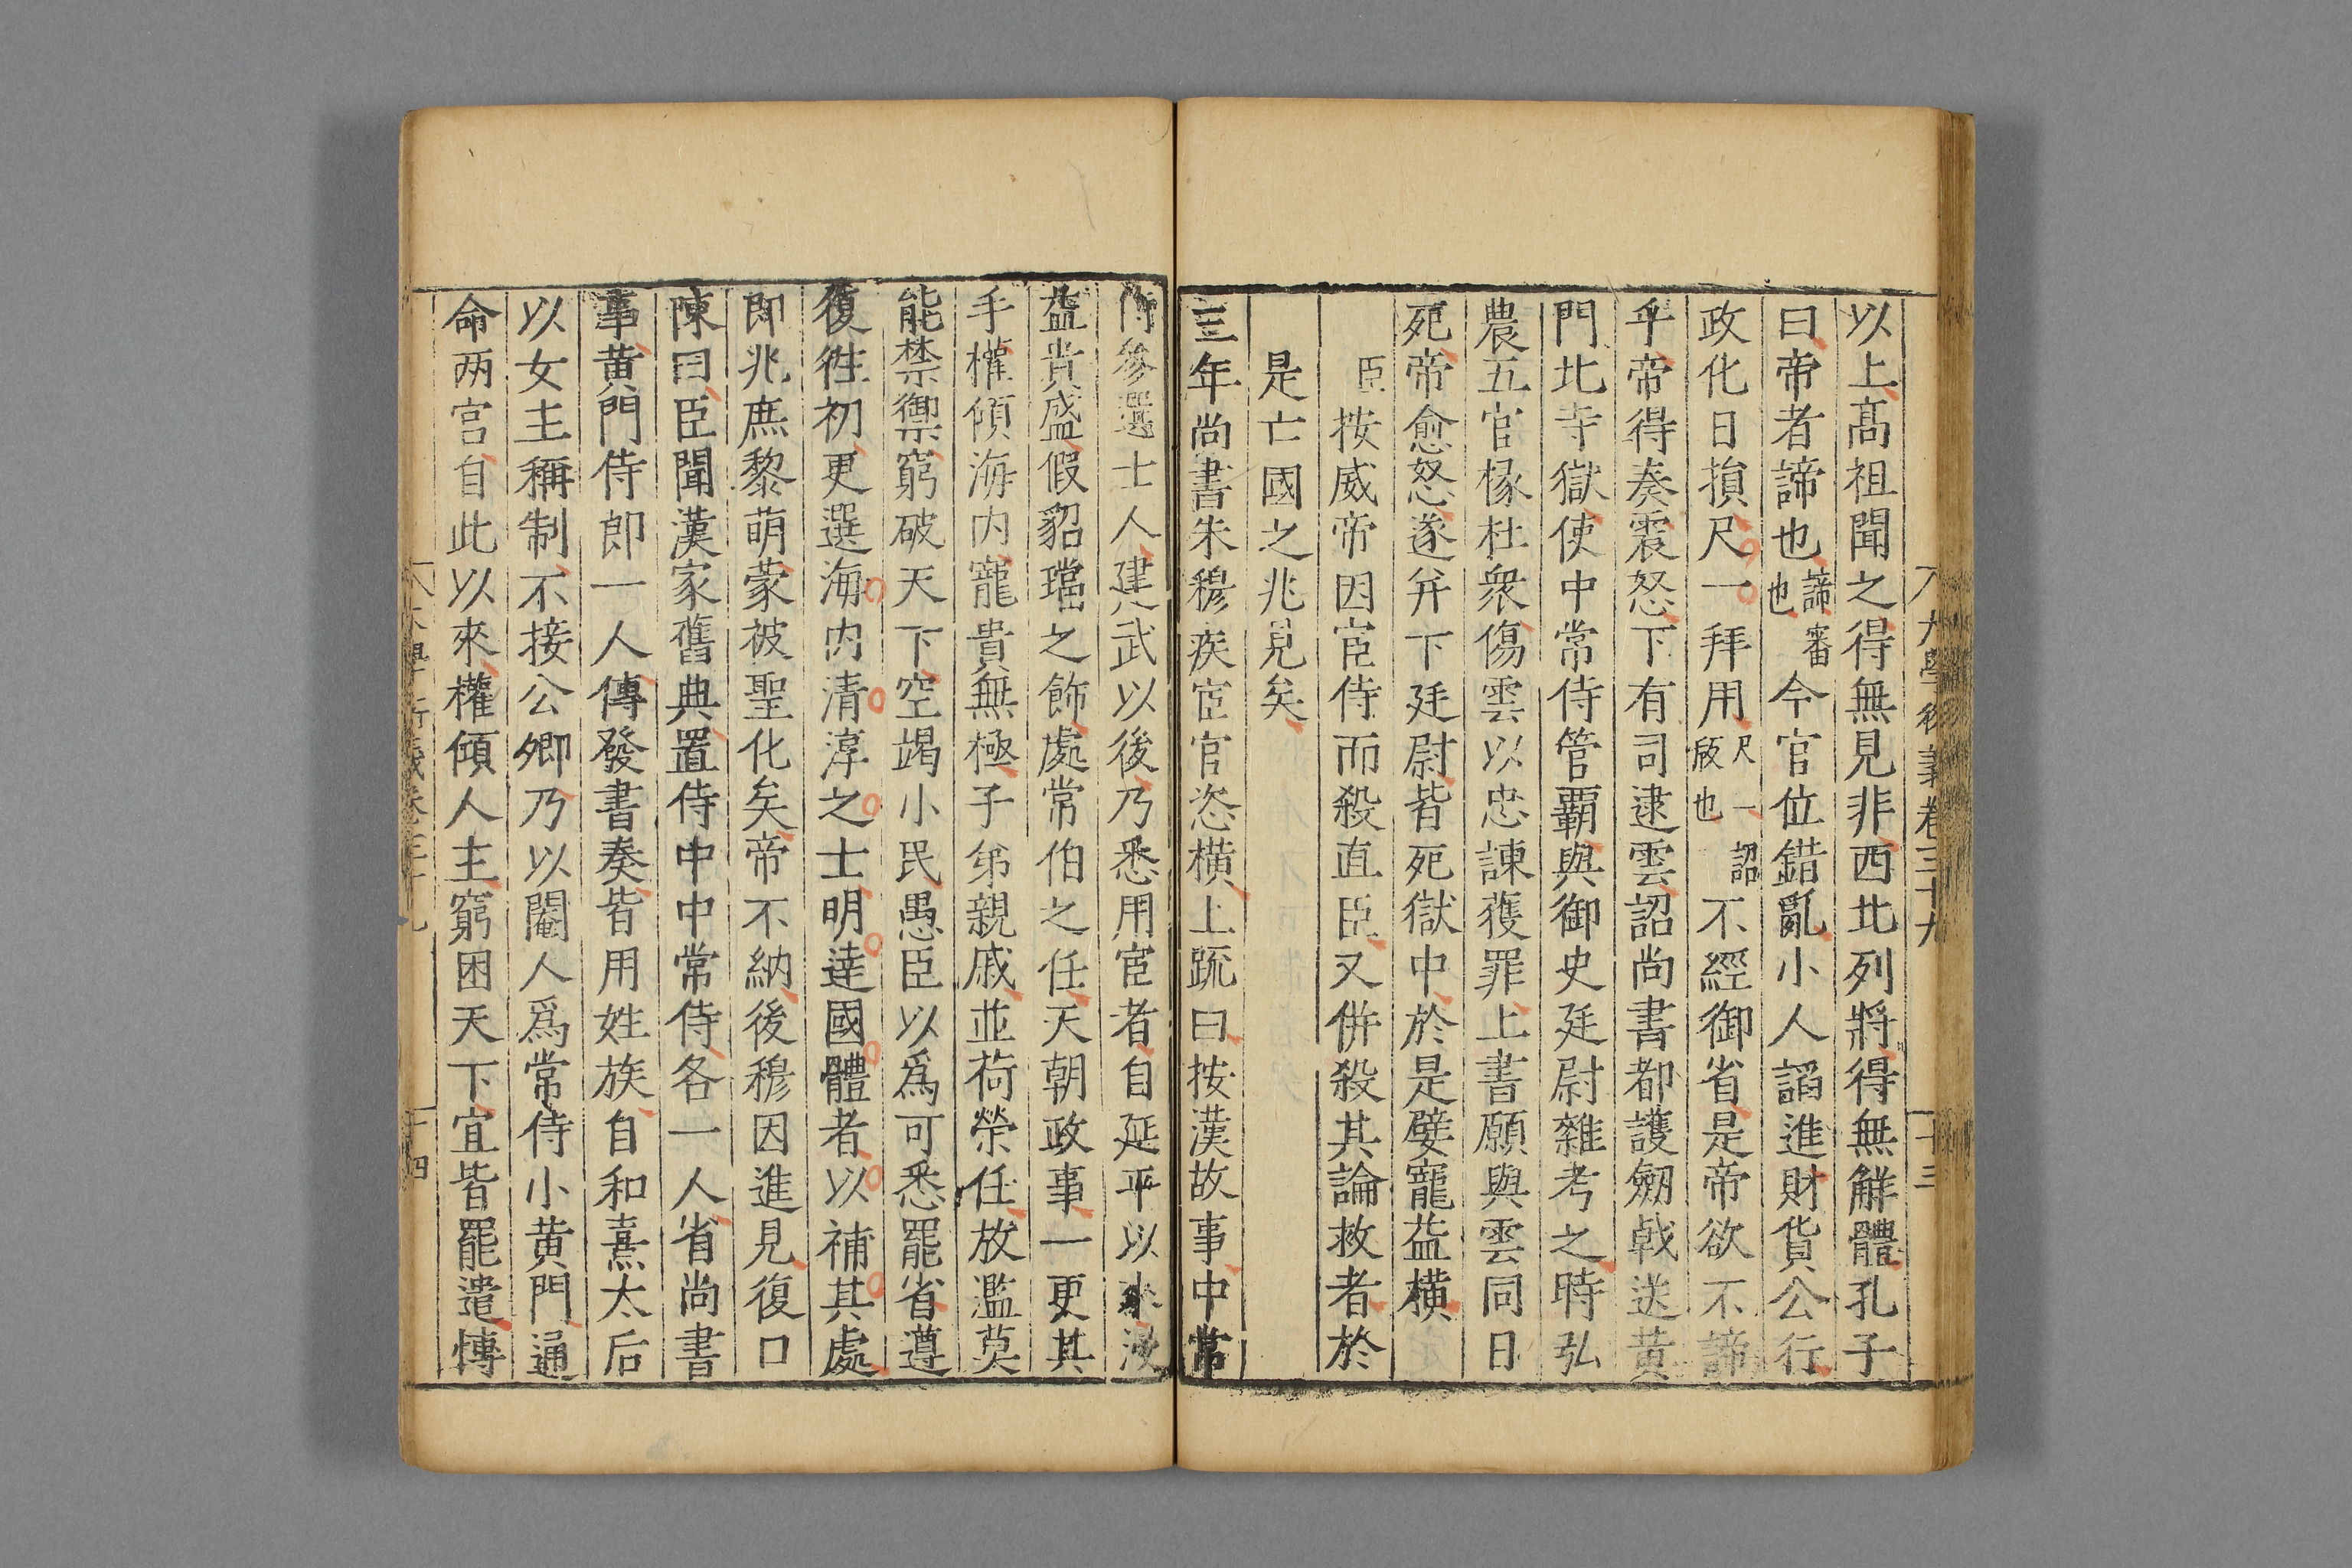 大學衍義卷三十九
十三
以上高祖聞之得無見非西北列將得無觧體孔子
曰帝者諦也諦審也今官位錯亂小人謟進財貨公行
政化日損尺一拜用尺一詔版也不經御省是帝欲不諦
乎帝得奏震怒下有司逮雲詔尚書都護劒戟送黄
門北寺獄使中常侍管覇與御史廷尉雜考之時弘
農五官椽杜衆傷雲以忠諫獲罪上書願與雲同日
死帝愈怒遂并下廷尉皆死獄中於是嬖寵益橫
臣按威帝因宦侍而殺直臣又併殺其論救者於
是亡國之兆見矣
三年尚書朱穆疾宦官恣橫上疏曰按漢故事中常
侍參選士人建武以後乃悉用宦者自延平以來浸
益貴盛假貂璫之飾處常伯之任天朝政事一更其
手權傾海内寵貴無極子弟親戚並荷榮任放濫莫
能禁禦窮破天下空竭小民愚臣以爲可悉罷省遵
復徃初更選海内清淳之士明達國體者以補其處
即兆庶黎萌蒙被聖化矣帝不納後穆因進見復口
陳曰臣聞漢家舊典置侍中中常侍各一人省尚書
事黄門侍郎一人傳發書奏皆用姓族自和熹太后
以女主稱制不接公卿乃以閹人爲常侍小黄門通
命两宫自此以來權傾人主窮困天下宜皆罷遣博
大學衍義卷三十九
十四